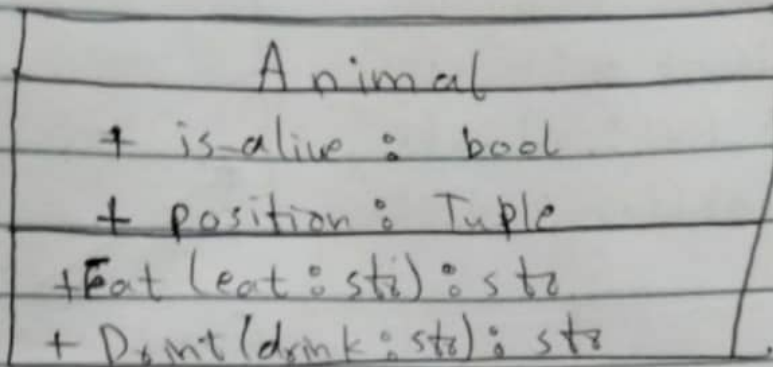 Animal
+ is-alive : bool
+ position : Tuple
+Eat (eat : str) : str
+ Drint (drink : str) : str